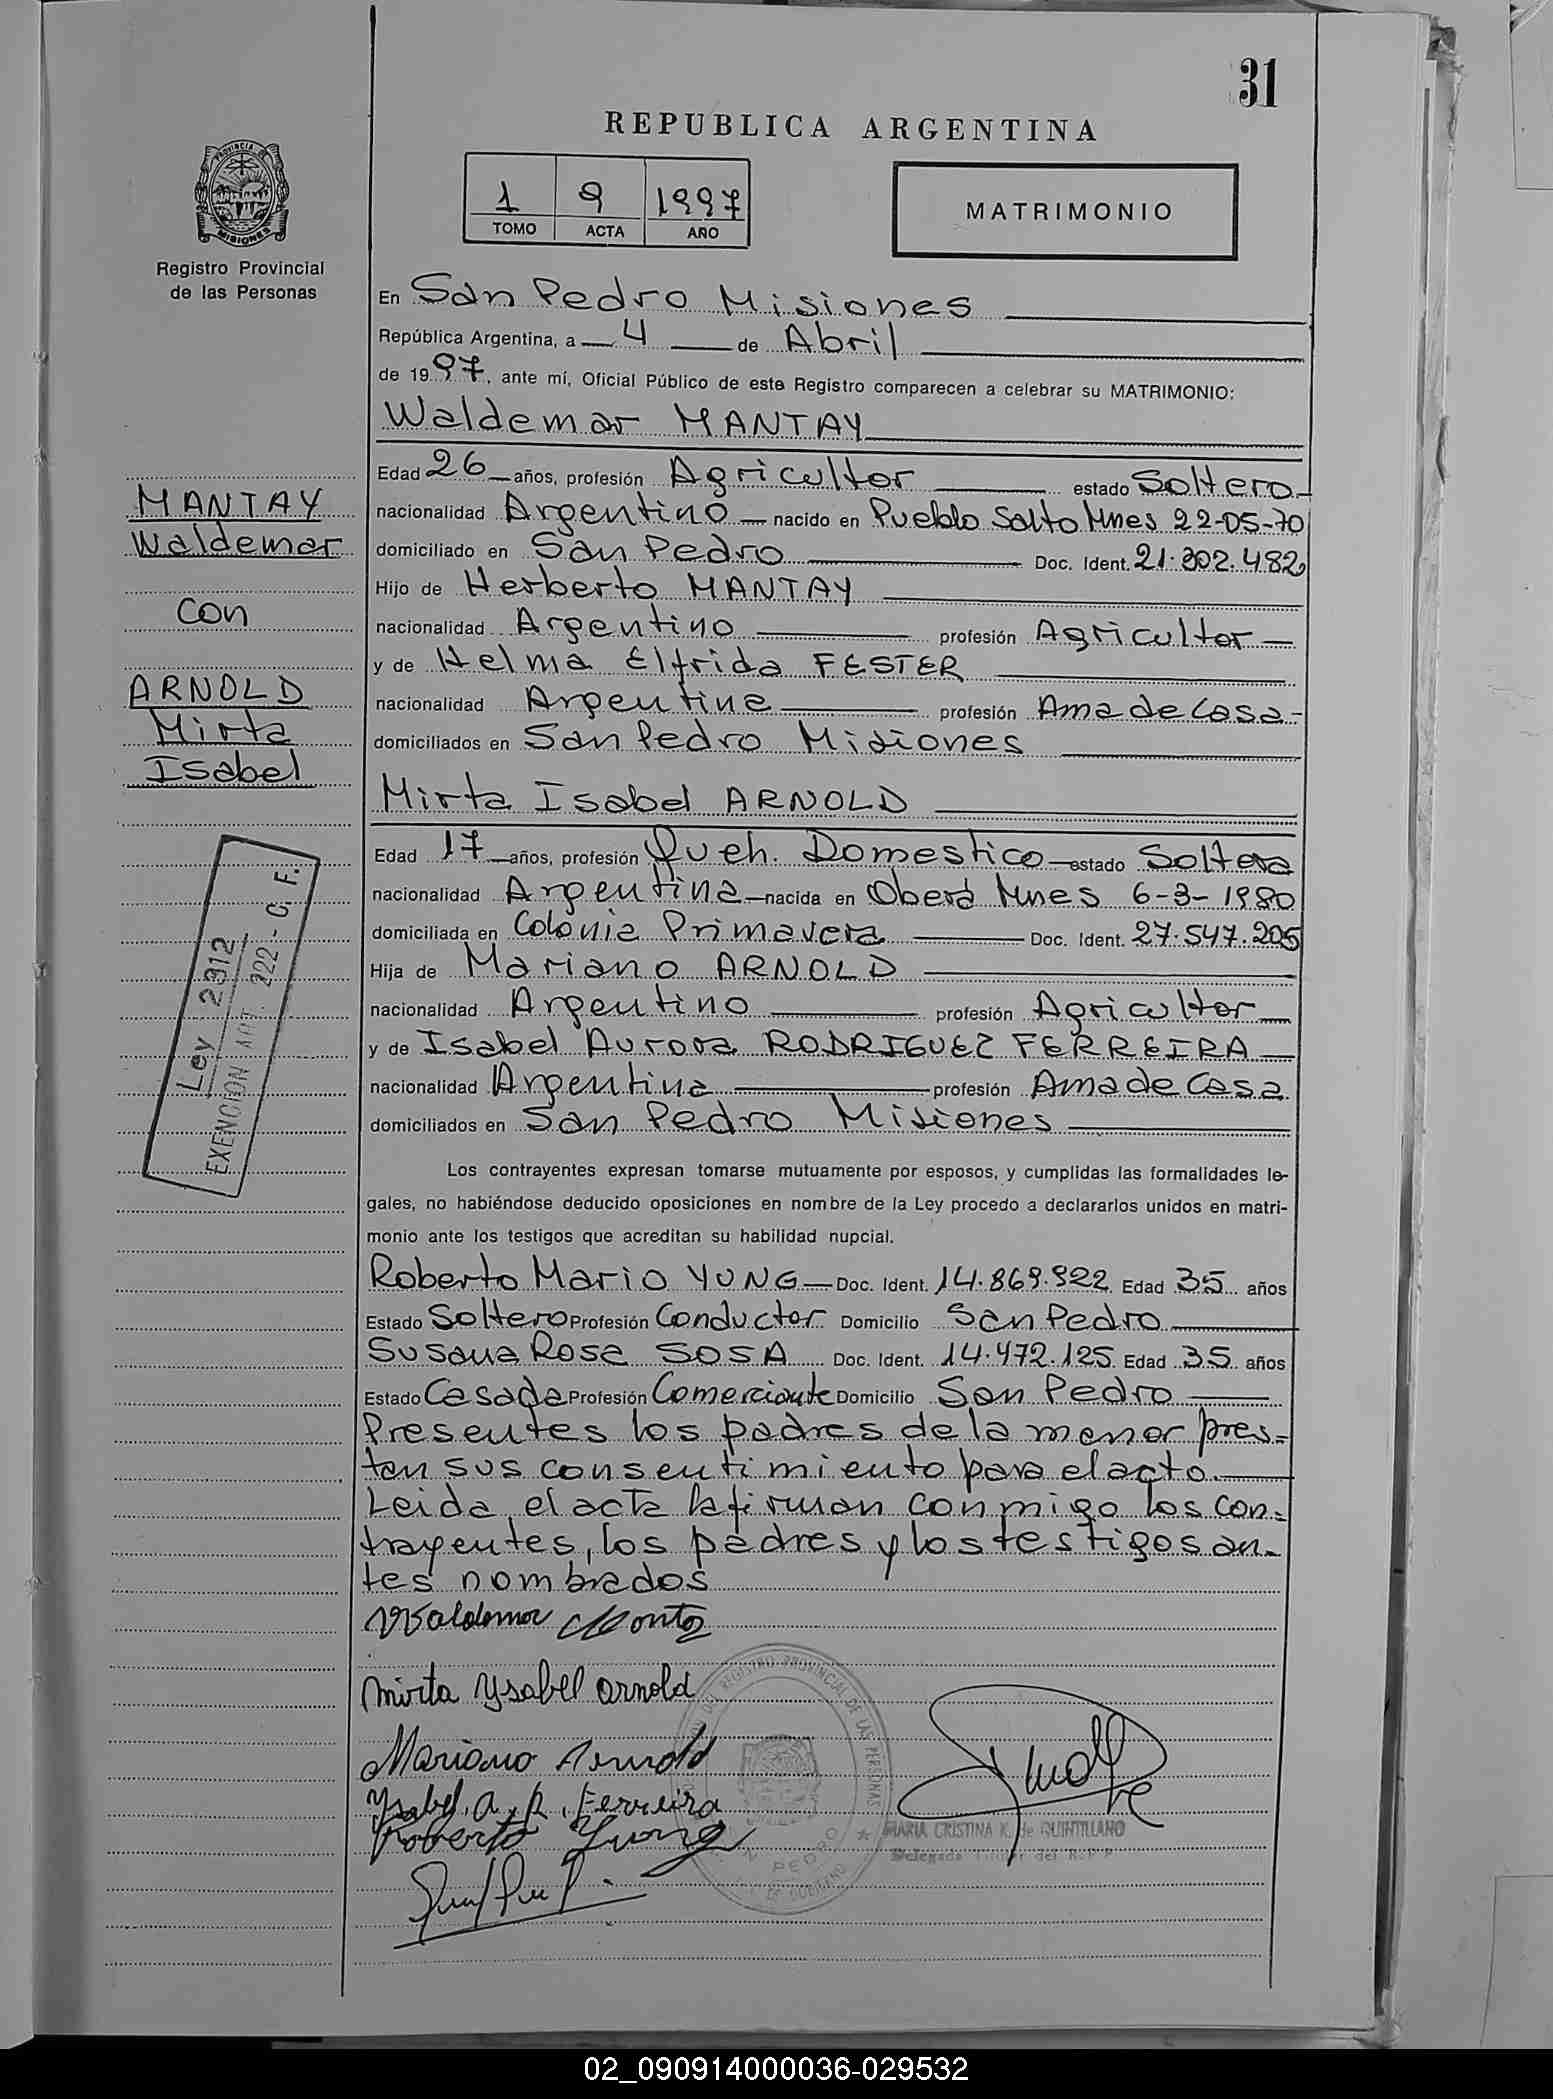 31
REPUBLICA ARGENTINA
PROVINCIA DE
MISIONES
Registro Provincial
de las Personas
1 9 1997
TOMO ACTA AÑO
MATRIMONIO
En San Pedro Misiones
República Argentina, a 4 de Abril
de 1997, ante mí, Oficial Público de este Registro comparecen a celebrar su MATRIMONIO:
Waldemar MANTAY
Edad 26 años, profesión Agricultor estado Soltero
nacionalidad Argentino nacido en Pueblo Salto Mnes 22-05-70
domiciliado en San Pedro Doc. Ident. 21.302.482
Hijo de Herberto MANTAY
nacionalidad Argentino profesión Agricultor
y de Helma Elfrida FESTER
nacionalidad Argentina profesión Ama de Casa
domiciliados en San Pedro Misiones
Mirta Isabel ARNOLD
Edad 17 años, profesión Queh. Domestico estado Soltera
nacionalidad Argentina nacida en Oberá Mnes 6-3-1980
domiciliada en Colonia Primavera Doc. Ident. 27.547.205
Hija de Mariano ARNOLD
nacionalidad Argentino profesión Agricultor
y de Isabel Aurora RODRIGUEZ FERREIRA
nacionalidad Argentina profesión Ama de Casa
domiciliados en San Pedro Misiones
Los contrayentes expresan tomarse mutuamente por esposos, y cumplidas las formalidades le-
gales, no habiéndose deducido oposiciones en nombre de la Ley procedo a declararlos unidos en matri-
monio ante los testigos que acreditan su habilidad nupcial.
Roberto Mario YUNG Doc. Ident. 14.869.922 Edad 35 años
Estado Soltero Profesión Conductor Domicilio San Pedro
Susana Rosa SOSA Doc. Ident. 14.472.125 Edad 35 años
Estado Casada Profesión Comerciante Domicilio San Pedro
Presentes los padres de la menor pres-
tan sus consentimiento para el acto
Leida el acta la firman conmigo los con-
trayentes, los padres y los testigos an-
tes nombrados
Waldemar Montay
Mirta Ysabel Arnold
Mariano Arnold
Ysabel A. R. Ferreira
Roberto Yung
MARIA CRISTINA K. de QUINTILLANO
Delegada Titular del R.P.P
REGISTRO PROVINCIAL DE LAS PERSONAS
MANTAY
Waldemar
con
ARNOLD
Mirta
Isabel
Ley 2312
EXENCION ART. 222 - C. F.
02_090914000036-029532